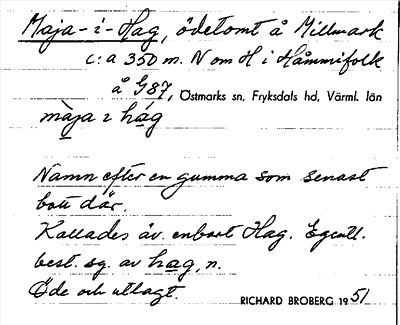 Maja-i-Hag, ödetomt å Millmark
c:a 350 m. N om H i Håmmifolk
å G87, Östmarks sn, Fryksdals hd, Värml. län
màja 2 hág
Namn efter en gumma som senast
bott där.
Kallades äv. enbart Hag. Egentl.
best. sg. av hag, n.
Öde och utlagt.
RICHARD BROBERG 1951